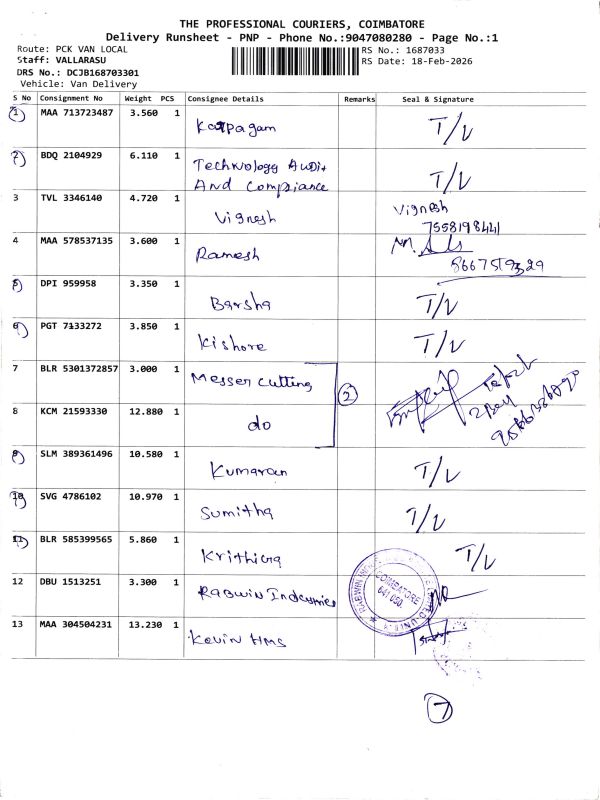 THE PROFESSIONAL COURIERS, COIMBATORE
Delivery Runsheet - PNP - Phone No.:9047080280 - Page No.:1
Route: PCK VAN LOCAL
RS No.: 1687033
Staff: VALLARASU
RS Date: 18-Feb-2026
DRS No.: DCJB168703301
Vehicle: Van Delivery
S No Consignment No Weight PCS Consignee Details Remarks Seal & Signature
1 MAA 713723487 3.560 1 Karpagam T/L
2 BDQ 2104929 6.110 1 Technology Audit
And Compliance T/L
3 TVL 3346140 4.720 1 Vignesh Vignesh
7558198441
4 MAA 578537135 3.600 1 Ramesh
8667519329
5 DPI 959958 3.350 1 Barsha T/L
6 PGT 7133272 3.850 1 Kishore T/L
7 BLR 5301372857 3.000 1 Messer Cutting 2
8 KCM 21593330 12.880 1 do
9 SLM 389361496 10.580 1 Kumaran T/L
10 SVG 4786102 10.970 1 Sumitha T/L
11 BLR 585399565 5.860 1 Krithiga T/L
12 DBU 1513251 3.300 1 Rabwin Industries
COIMBATORE
641 050.
13 MAA 304504231 13.230 1 Kevin HMS
7